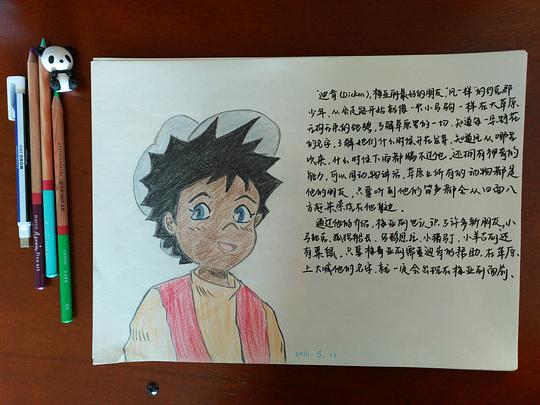 迪肯(Dicken),梅亚丽最好的朋友,风一样的约克郡
少年.从会走路开始就像一只小马驹一样在大草原
无拘无束的驰骋,了解草原里的一切,知道每一朵野花
的名字,了解她们什么时候开花发芽,知道风从哪里
吹来,什么时候下雨都瞒不过他,还拥有神奇的
能力,可以同动物讲话,草原上所有的动物都是
他的朋友,只要听到他的笛声都会从四面八
方赶来停在他身边.
通过他的介绍,梅亚丽也认识了许多新朋友,小
船长、小羊古利还
有 只要梅亚丽需要迪肯的帮助,在草原
上大喊他的名字,就一定会出现在梅亚丽面前.
2016.5.11
MONO